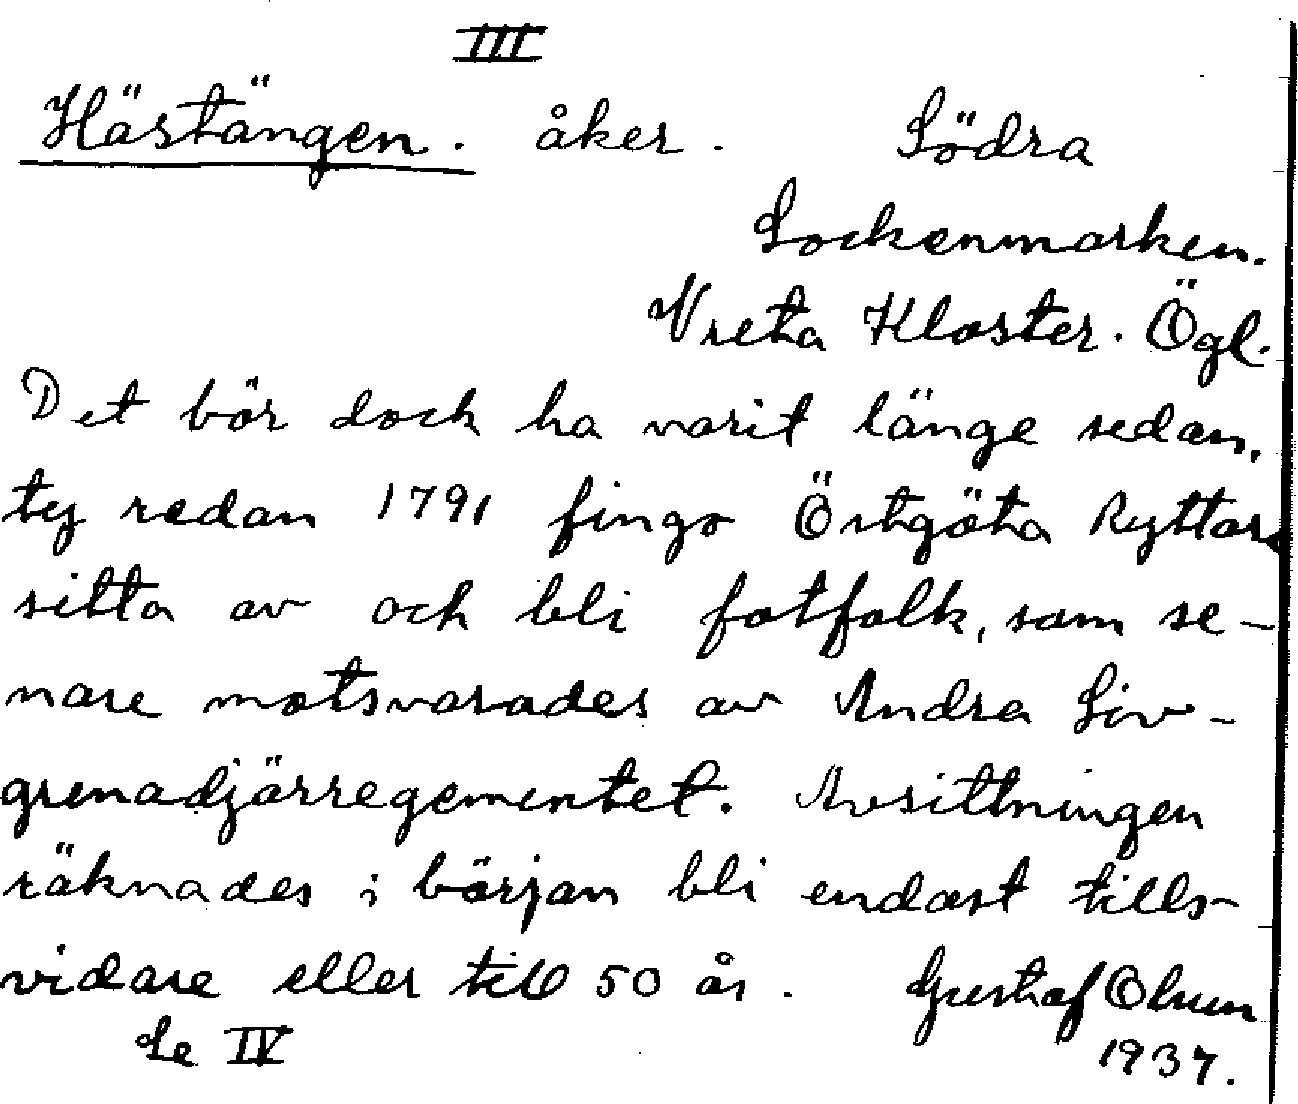 III
Hästängen. åker. Södra
Sockenmarken.
Vreta Kloster. Ögl.
Det bör dock ha varit länge sedan,
ty redan 1791 fingo Östgöta Ryttare
sitta av och bli fotfolk, som se-
nare motsvarades av Andra Liv-
grenadjärregementet. Avsittningen
räknades i början bli endast tills-
vidare eller till 50 år. Gustaf Olsson
Se IV 1937.